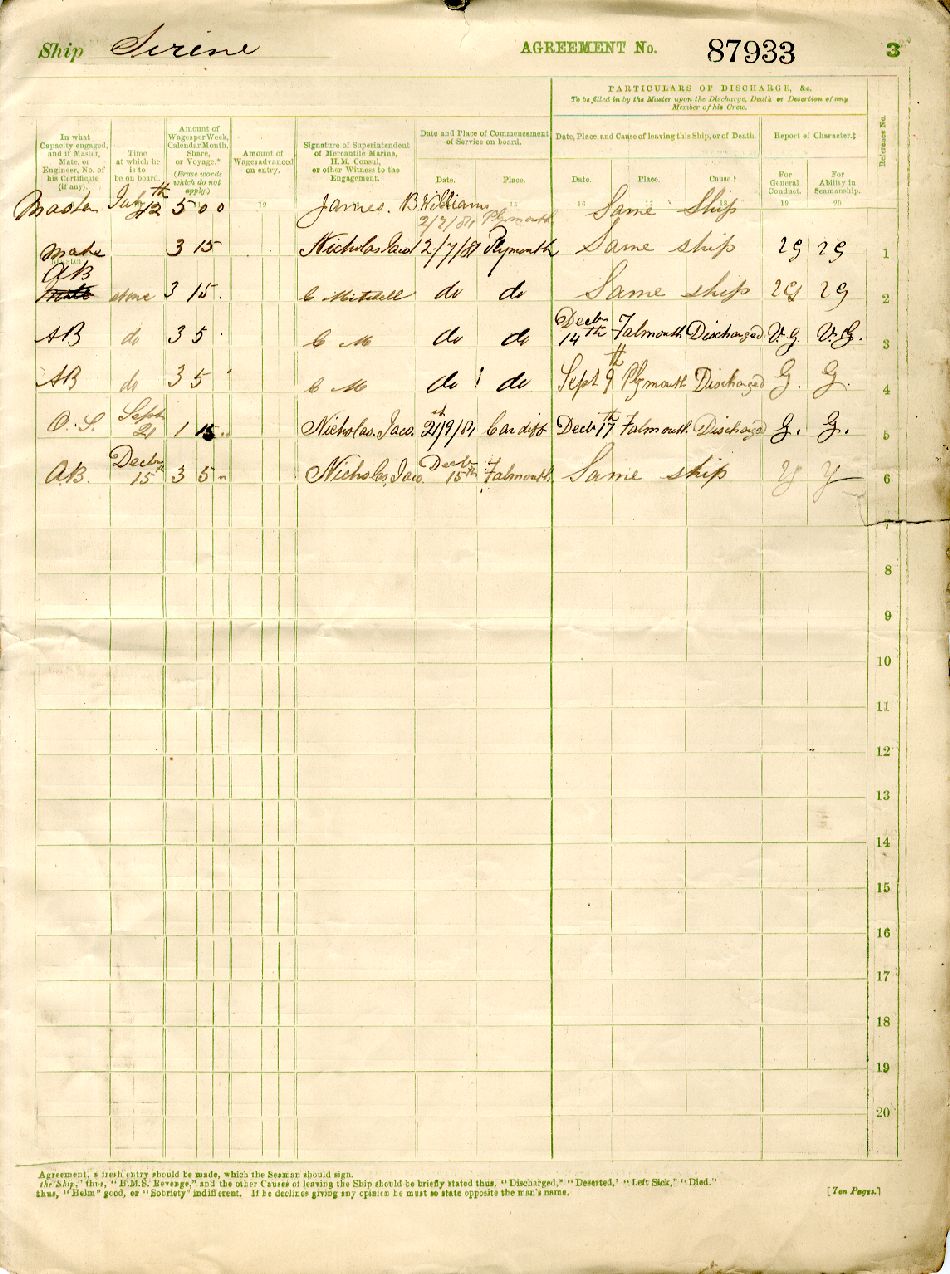 Ship Sirene AGREEMENT No. 87933 3
PARTICULARS OF DISCHARGE, &c.
To be filled in by the Master upon the Discharge, Death or Desertion of any Member of his Crew.
In what Capacity engaged, and if Master, Mate, or Engineer, No. of his Certificate (if any).
Time at which he is to be on board.
Amount of Wages per Week, Calendar Month, Share, or Voyage.* (Erase words which do not apply.)
Amount of Wages advanced on entry.
Signature of Superintendent of Mercantile Marine, H.M. Consul, or other Witness to the Engagement.
Date and Place of Commencement of Service on board.
Date. Place.
Date, Place, and Cause of leaving this Ship, or of Death.
Date. Place. Cause.†
Report of Character.‡
For General Conduct. For Ability in Seamanship.
Reference No.
19 20
Master 12 5 0 0 James. B Williams 2/7/84 Plymouth Same Ship
Mate 3 15 Nicholas Jaco 2/7/84 Plymouth Same ship VG VG 1
AB 3 15 C Mitchell do do Same ship VG VG 2
AB do 3 5 C M do do Decbr 14th Falmouth Discharged V.G. V.G. 3
AB do 3 5 C M do do Sept 9th Plymouth Discharged G. G. 4
O.S. Sept 21 1 15 Nicholas. Jaco. 21st/9/84 Cardiff Decbr 17th Falmouth Discharged G. G. 5
A.B. Decbr 15th 3 5 Nicholas, Jaco. Decbr 15th Falmouth Same ship 6
7
8
9
10
11
12
13
14
15
16
17
18
19
20
Agreement, a fresh entry should be made, which the Seaman should sign.
the Ship," thus, "H.M.S. Revenge," and the other Causes of leaving the Ship should be briefly stated thus, "Discharged," "Deserted," "Left Sick," "Died."
thus, "Helm" good, or "Sobriety" indifferent. If he declines giving any opinion he must so state opposite the man's name.
[Ten Pages.]